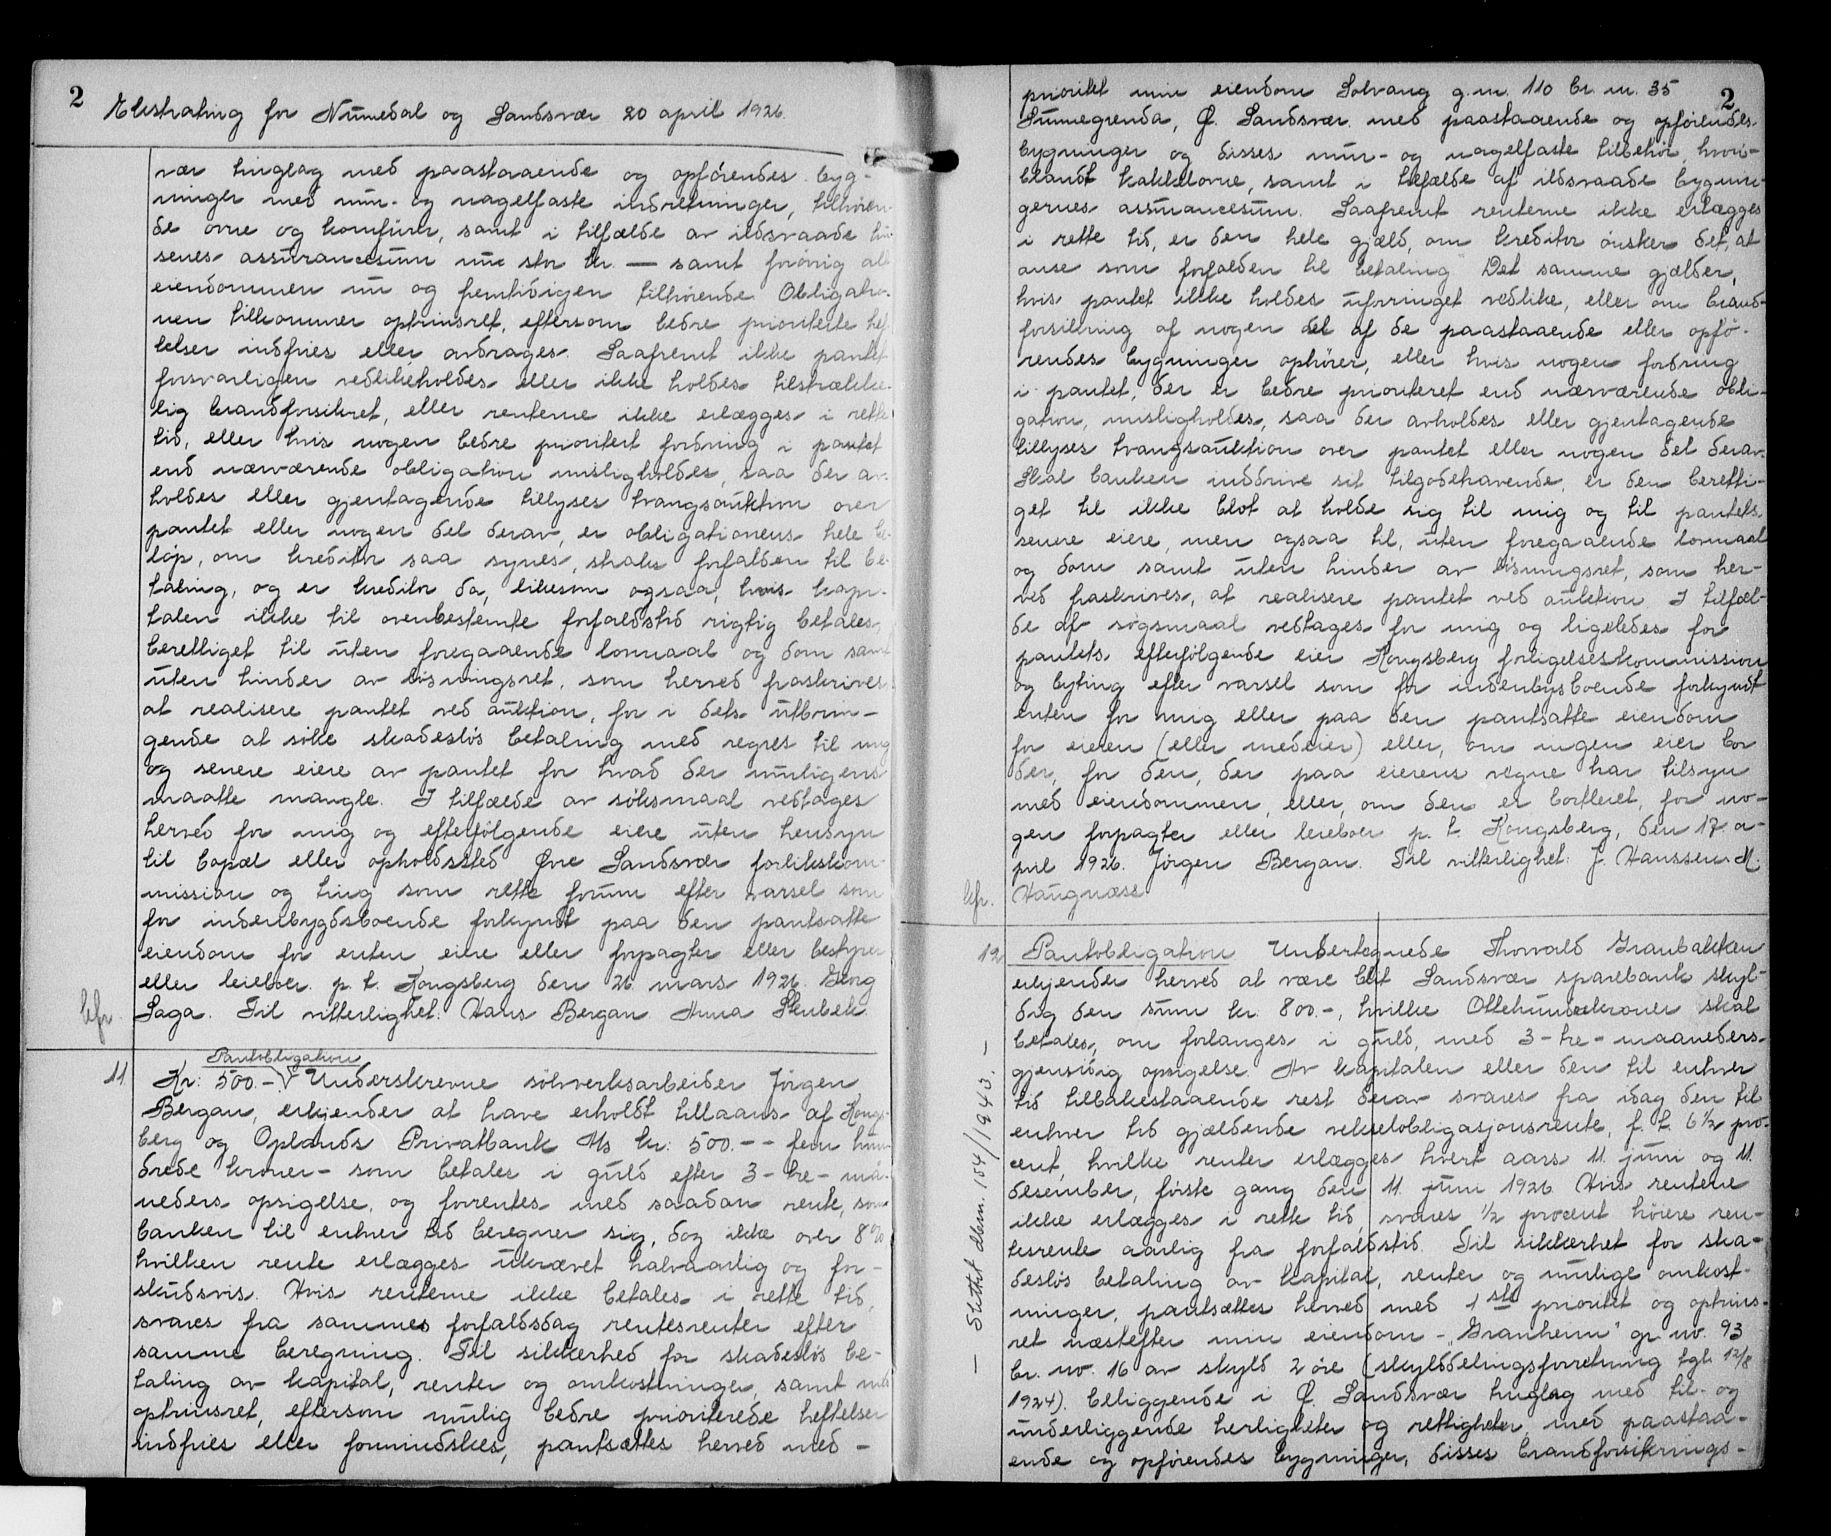 2
Ekstrating for Numedal og Sandsvær 20 april 1926.
vær tinglag med paastaaende og opførendes byg-
ninger med mur- og nagelfaste indretninger, tilhøren-
de ovne og komfurer, samt i tilfælde av ildsvaade hu-
senes assurancesum nu stor kr. — samt forøvrig alt
eiendommen nu og fremtidigen tilhørende. Obligatio-
nen tilkommer optrinsret, eftersom bedre prioriterte hef-
telser indfries eller avdrages. Saafremt ikke pantet
forsvarligen vedlikeholdes eller ikke holdes tilstrække-
lig brandforsikret, eller renterne ikke erlægges i rette
tid, eller hvis nogen bedre prioritert fordring i pantet
end nærværende obligation misligholdes, saa der av-
holdes eller gjentagende tillyses tvangsauktion over
pantet eller nogen del derav, er obligationens hele be-
løp, om kreditor saa synes, straks forfalden til be-
taling, og er kreditor da, likesom ogsaa, hvis kapi-
talen ikke til ovenbestemte forfaldstid rigtig betales,
berettiget til uten foregaaende lovmaal og dom samt
uten hinder av løsningsret, som herved fraskrives
at realisere pantet ved auktion, for i dets utbrin-
gende at søke skadesløs betaling med regres til mig
og senere eiere av pantet for hvad der muligens
maatte mangle. I tilfælde av søksmaal vedtages
herved for mig og efterfølgende eiere uten hensyn
til bopæl eller opholdssted Øvre Sandsvær forlikskom-
mission og ting som rette forum efter varsel som
for indenbygdsboende forkyndt paa den pantsatte
eiendom for enten eiere eller forpagter eller bestyrer
eller leieboer. p. t. Kongsberg den 26 mars 1926. Georg
bfr. Saga. Til vitterlighet: Hans Bergan. Anna Skubek.
Pantobligation
11 Kr: 500.- V Underskrevne sølvverksarbeider Jørgen
Bergan, erkjender at have erholdt tillaans af Kongs-
berg og Oplands Privatbank A/s kr: 500.-- fem hun-
drede kroner - som betales i guld efter 3-tre-må-
neders opsigelse, og forrentes med saadan rente, som
banken til enhver tid beregner sig, dog ikke over 8 %
hvilken rente erlægges ukrævet halvaarlig og for-
skudsvis. Hvis renterne ikke betales i rette tid,
svares fra sammes forfaldsdag rentesrenter efter
samme beregning. Til sikkerhed for skadesløs be-
taling av kapital, renter og omkostninger, samt med
optrinsret, eftersom mulig bedre prioriterede heftelser
indfries eller formindskes, pantsættes herved med -
2
prioritet min eiendom Solvang g.nr. 110 br. nr. 35
Sunnegrenda, Ø. Sandsvær med paastaaende og opførendes
bygninger og disses mur- og nagelfaste tilbehør, hvori-
blandt kakkelovne, samt i tilfælde af ildsvaade bygnin-
gernes assurancesum. Saafremt renterne ikke erlægges
i rette tid, er den hele gjæld, om kreditor ønsker det, at
anse som forfalden til betaling. Det samme gjælder,
hvis pantet ikke holdes uforringet vedlike, eller om brand-
forsikring af nogen del af de paastaaende eller opfø-
rendes bygninger ophører, eller hvis nogen fordring
i pantet, der er bedre prioriteret end nærværende obli-
gation, misligholdes, saa der avholdes eller gjentagende
tillyses tvangsauktion over pantet eller nogen del derav.
Skal banken inddrive sit tilgodehavende, er den beretti-
get til ikke blot at holde sig til mig og til pantets
senere eiere, men ogsaa til, uten foregaaende lovmaal
og dom samt uten hinder av løsningsret, som her-
ved fraskrives, at realisere pantet ved auktion. I tilfæl-
de af søgsmaal vedtages for mig og ligeledes for
pantets efterfølgende eier Kongsberg forligelseskommission
og byting efter varsel som for indenbysboende forkyndt
enten for mig eller paa den pantsatte eiendom
for eieren (eller medeier) eller, om ingen eier bor
der, for den, der paa eierens vegne har tilsyn
med eiendommen, eller, om den er bortleiet, for no-
gen forpagter eller leieboer p. t. Kongsberg, den 17 a-
pril 1926. Jørgen Bergan. Til vitterlighet: J. Hanssen. M.
bfr. Haugnæss
12 Pantobligation Undertegnede Thorvald Granbakken
erkjender herved at være blit Sandsvær sparebank skyl-
dig den sum kr. 800.-, hvilke Ottehundrekroner skal
betales, om forlanges i guld, med 3-tre-maaneders-
gjensidig opsigelse. Av kapitalen eller den til enhver
tid tilbakestaaende rest derav svares fra idag den til
enhver tid gjældende vekselobligasjonsrente, f. t. 6 ½ pro-
cent, hvilke renter erlægges hvert aars 11. juni og 11.
desember, første gang den 11. juni 1926. Hvis rentene
ikke erlægges i rette tid, svares ½ procent høiere ren-
tesrente aarlig fra forfaldstid. Til sikkerhet for ska-
desløs betaling av kapital, renter og mulige omkost-
ninger, pantsættes herved med 1ste prioritet og optrins-
ret næstefter min eiendom - "Granheim" gr. nr. 93
br. nr. 16 av skyld 2 øre (skylddelingsforretning tgl. 12/8
1924). beliggende i Ø. Sandsvær tinglag med til- og
underliggende herligheter og rettigheter, med paastaa-
ende og opførendes bygninger, disses brandforsikrings-
— Slettet dbnr. 154/1940. —